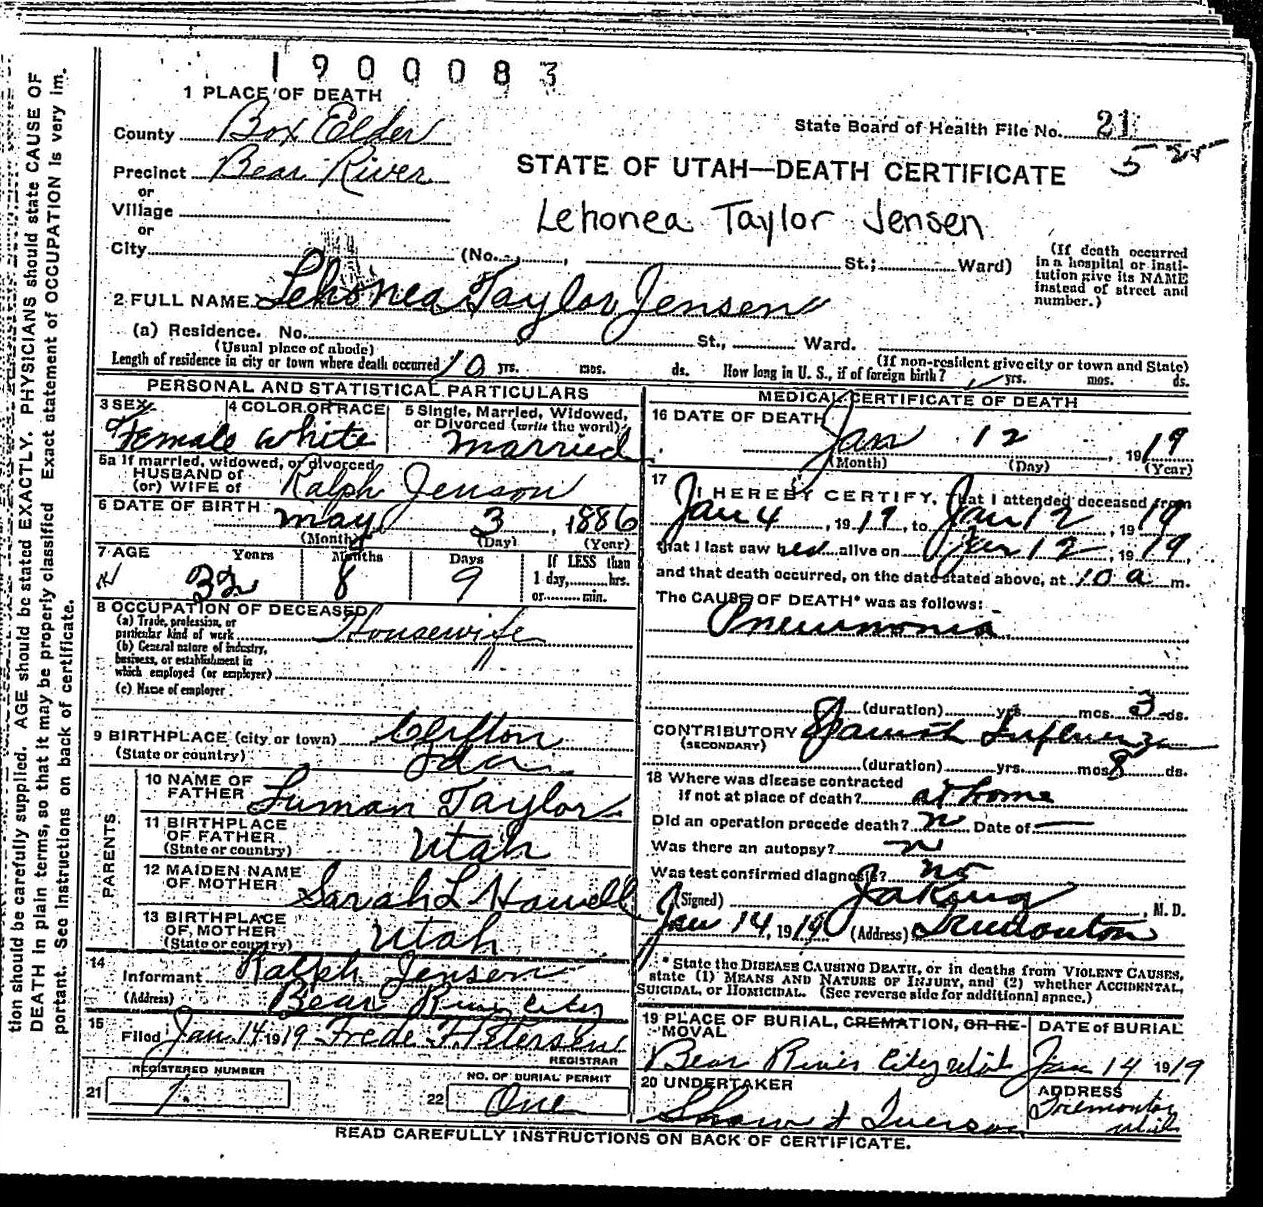 1900083
1 PLACE OF DEATH
County Box Elder
State Board of Health File No. 21
Precinct Bear River
5 25
STATE OF UTAH—DEATH CERTIFICATE
or
Village
Lehonea Taylor Jensen
or
City (No. , St.; Ward)
(If death occurred in a hospital or institution give its NAME instead of street and number.)
2 FULL NAME Lehonea Taylor Jensen
(a) Residence. No. St., Ward.
(Usual place of abode) (If non-resident give city or town and State)
Length of residence in city or town where death occurred 10 yrs. mos. ds. How long in U. S., if of foreign birth? yrs. mos. ds.
PERSONAL AND STATISTICAL PARTICULARS
3 SEX Female
4 COLOR OR RACE White
5 Single, Married, Widowed, or Divorced (write the word) married
5a If married, widowed, or divorced
HUSBAND of
(or) WIFE of Ralph Jenson
6 DATE OF BIRTH May 3, 1886
(Month) (Day) (Year)
7 AGE Years Months Days If LESS than
32 8 9 1 day, hrs.
or min.
8 OCCUPATION OF DECEASED
(a) Trade, profession, or
particular kind of work Housewife
(b) General nature of industry,
business, or establishment in
which employed (or employer) "
(c) Name of employer
9 BIRTHPLACE (city or town) Clifton
(State or country) Ida
PARENTS
10 NAME OF FATHER Luman Taylor
11 BIRTHPLACE OF FATHER
(State or country) Utah
12 MAIDEN NAME OF MOTHER Sarah L Howell
13 BIRTHPLACE OF MOTHER
(State or country) Utah
14 Informant Ralph Jensen
(Address) Bear River City
15 Filed Jan. 14 1919 Frede F. Petersen
REGISTRAR
REGISTERED NUMBER
21 1.
NO. OF BURIAL PERMIT
22 One
MEDICAL CERTIFICATE OF DEATH
16 DATE OF DEATH
Jan 12, 1919
(Month) (Day) (Year)
17 I HEREBY CERTIFY, that I attended deceased from
Jan 4, 1919, to Jan 12, 1919
that I last saw her alive on Jan 12, 1919,
and that death occurred, on the date stated above, at 10 a m.
The CAUSE OF DEATH* was as follows:
Pneumonia
(duration) yrs. mos. 3 ds.
CONTRIBUTORY Spanish Influenza
(SECONDARY)
(duration) yrs. mos 8 ds.
18 Where was disease contracted
if not at place of death? at home
Did an operation precede death? n Date of —
Was there an autopsy? n
Was test confirmed diagnosis? no
(Signed) , M.D.
Jan 14, 1919 (Address) Tremonton
* State the DISEASE CAUSING DEATH, or in deaths from VIOLENT CAUSES,
state (1) MEANS AND NATURE OF INJURY, and (2) whether ACCIDENTAL,
SUICIDAL, or HOMICIDAL. (See reverse side for additional space.)
19 PLACE OF BURIAL, CREMATION, OR REMOVAL
Bear River City Utah
DATE of BURIAL
Jan 14 1919
20 UNDERTAKER
Shaw & Iverson
ADDRESS
Tremonton
Utah
READ CAREFULLY INSTRUCTIONS ON BACK OF CERTIFICATE.
tion should be carefully supplied. AGE should be stated EXACTLY. PHYSICIANS should state CAUSE OF
DEATH in plain terms, so that it may be properly classified Exact statement of OCCUPATION is very im.
portant. See Instructions on back of certificate.